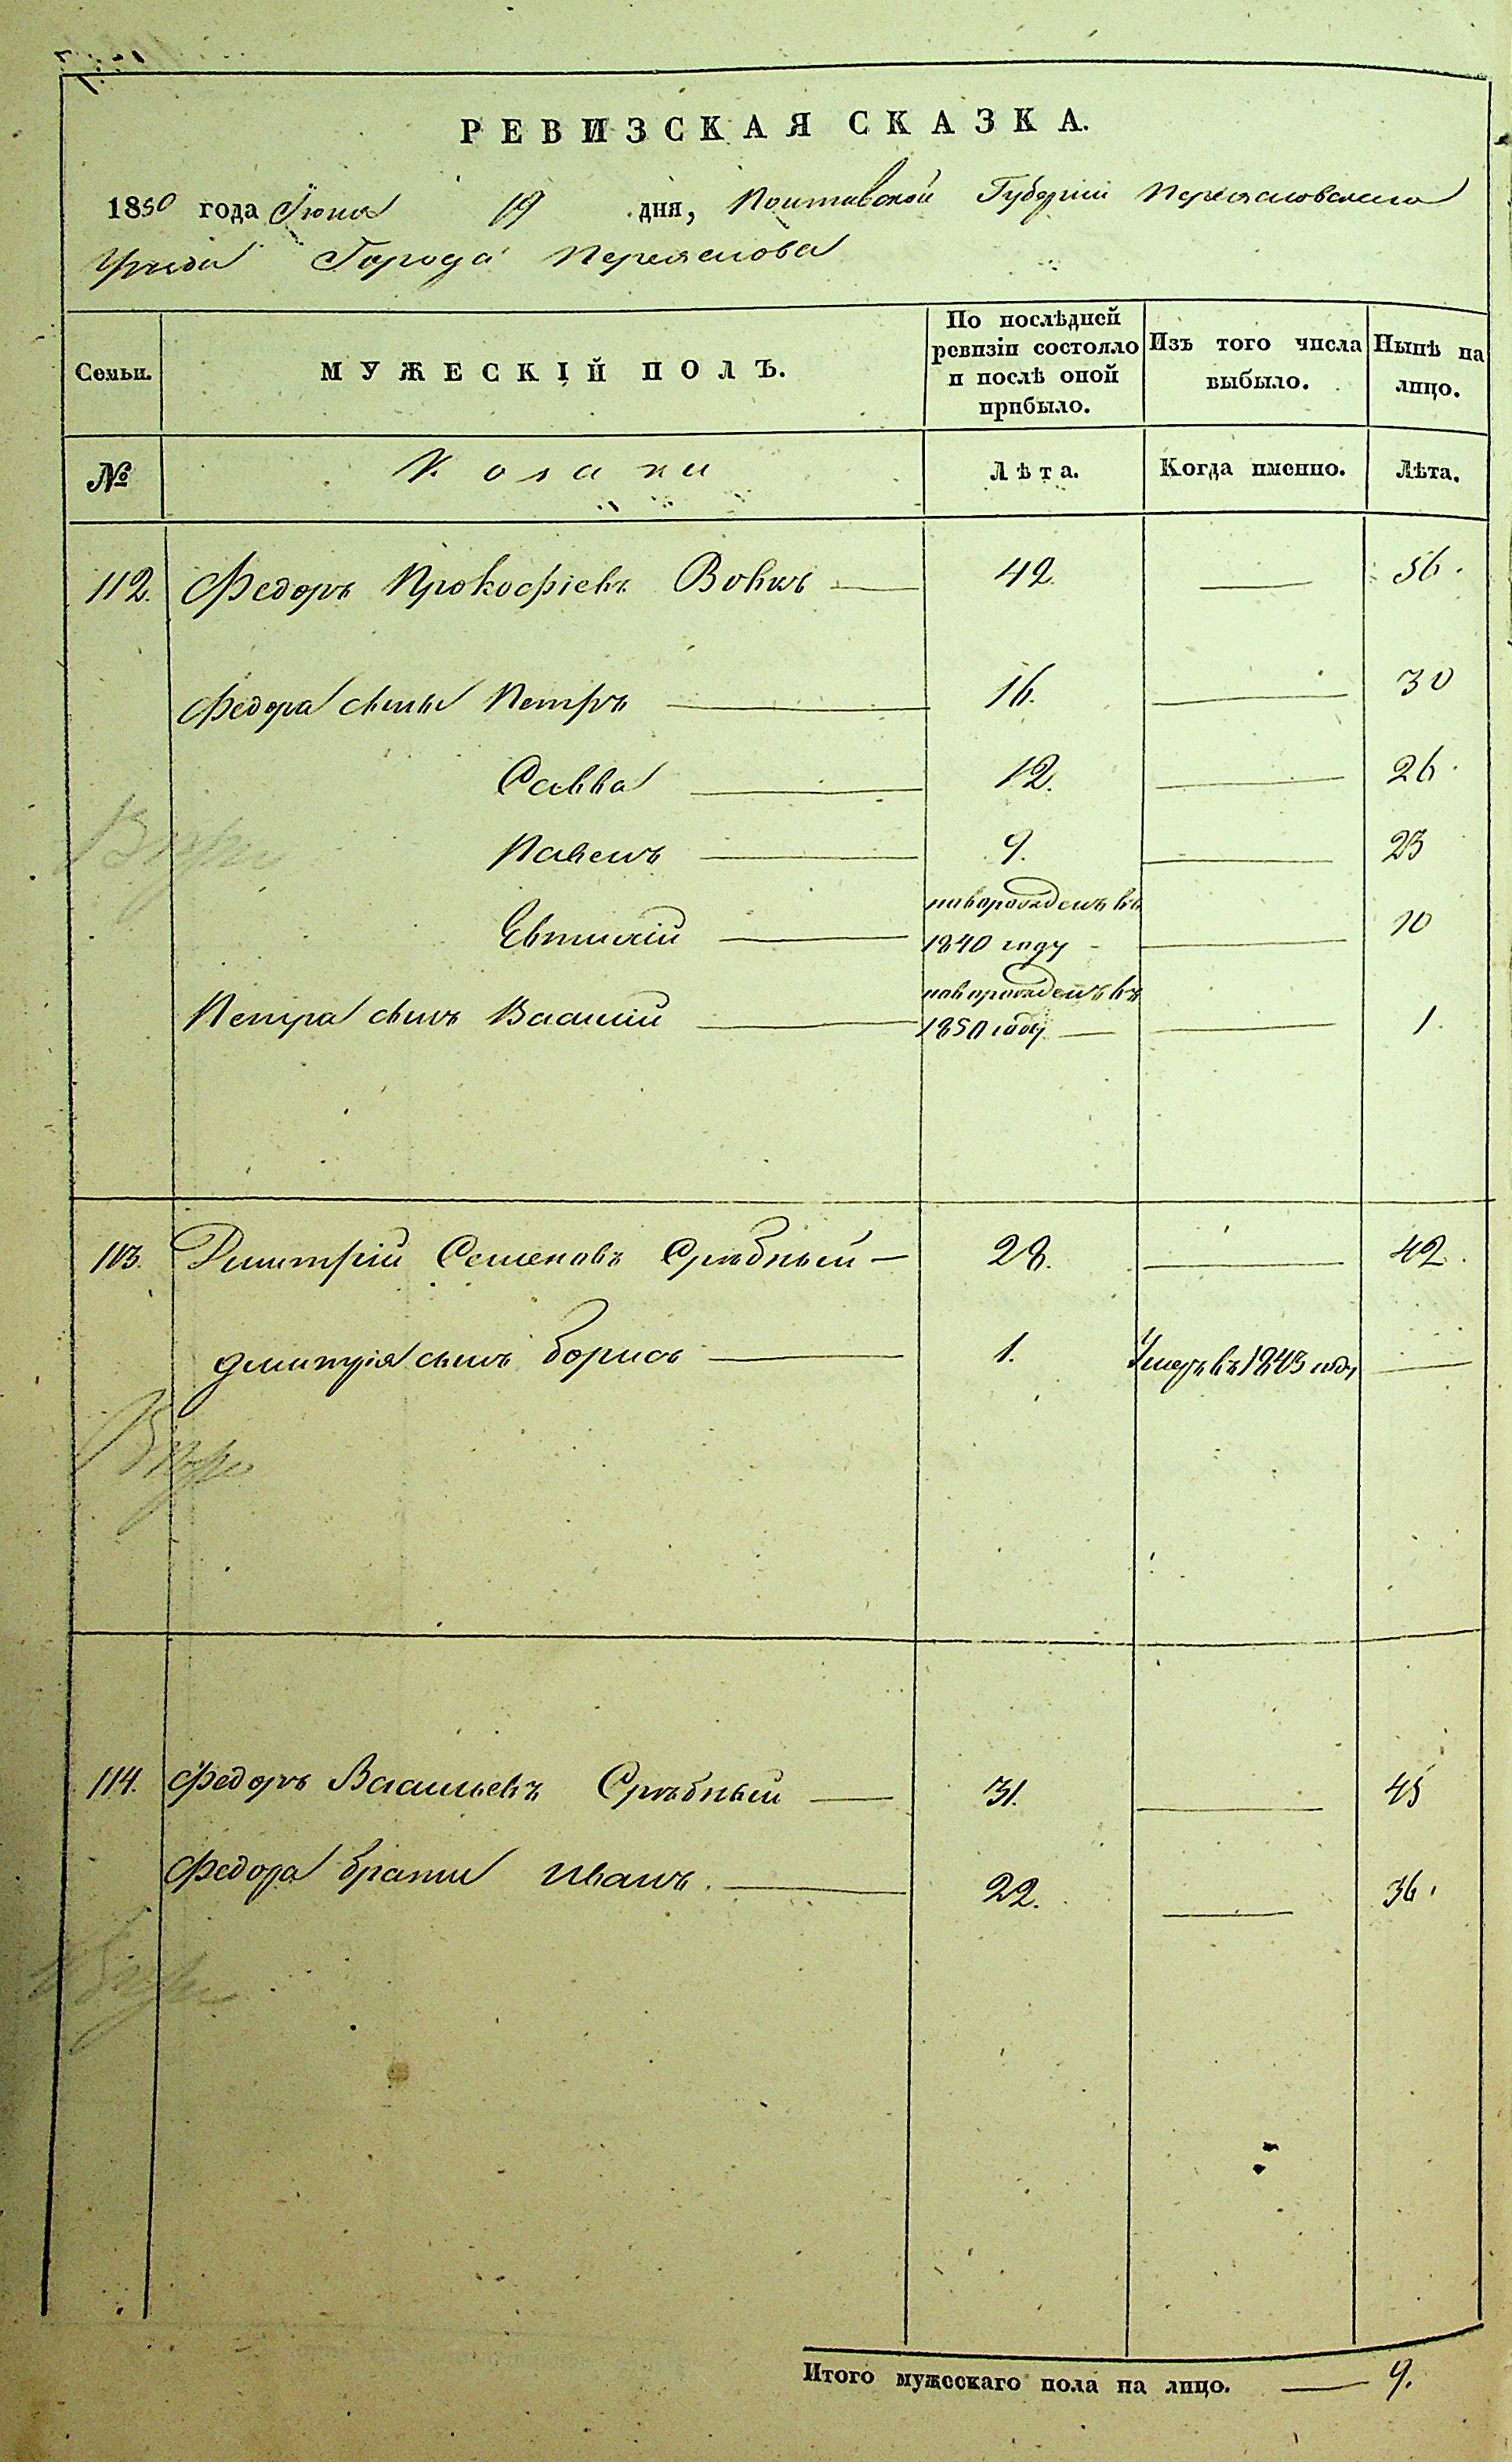 РЕВИЗСКАЯ СКАЗКА.
1850 года Іюня 19 дня, Полтавской Губерніи Переяславскаго
Уѣзда Города Переяслова
Семьи. МУЖЕСКІЙ ПОЛЪ. По послѣдней ревизіи состояло и послѣ оной прибыло. Изъ того числа выбыло. Нынѣ на лицо.
№ Козаки Лѣта. Когда именно. Лѣта.
112. Федоръ Прокофіевъ Вовкъ — 42. — 56.
Федора сыны Петръ — 16. — 30
Савва — 12. — 26.
Павелъ — 9. — 23
Евтихій — новорожденъ въ 1840 году — 10
Петра сынъ Василій — новорожденъ въ 1850 году — — 1.
113. Дмитрій Семеновъ Срѣбный — 28. — 42.
Дмитрія сынъ Борисъ — 1. Умеръ въ 1843 году —
114. Федоръ Васильевъ Срѣбный — 31. — 45
Федора братъ Иванъ. — 22. — 36.
Итого мужескаго пола на лицо. — 9.